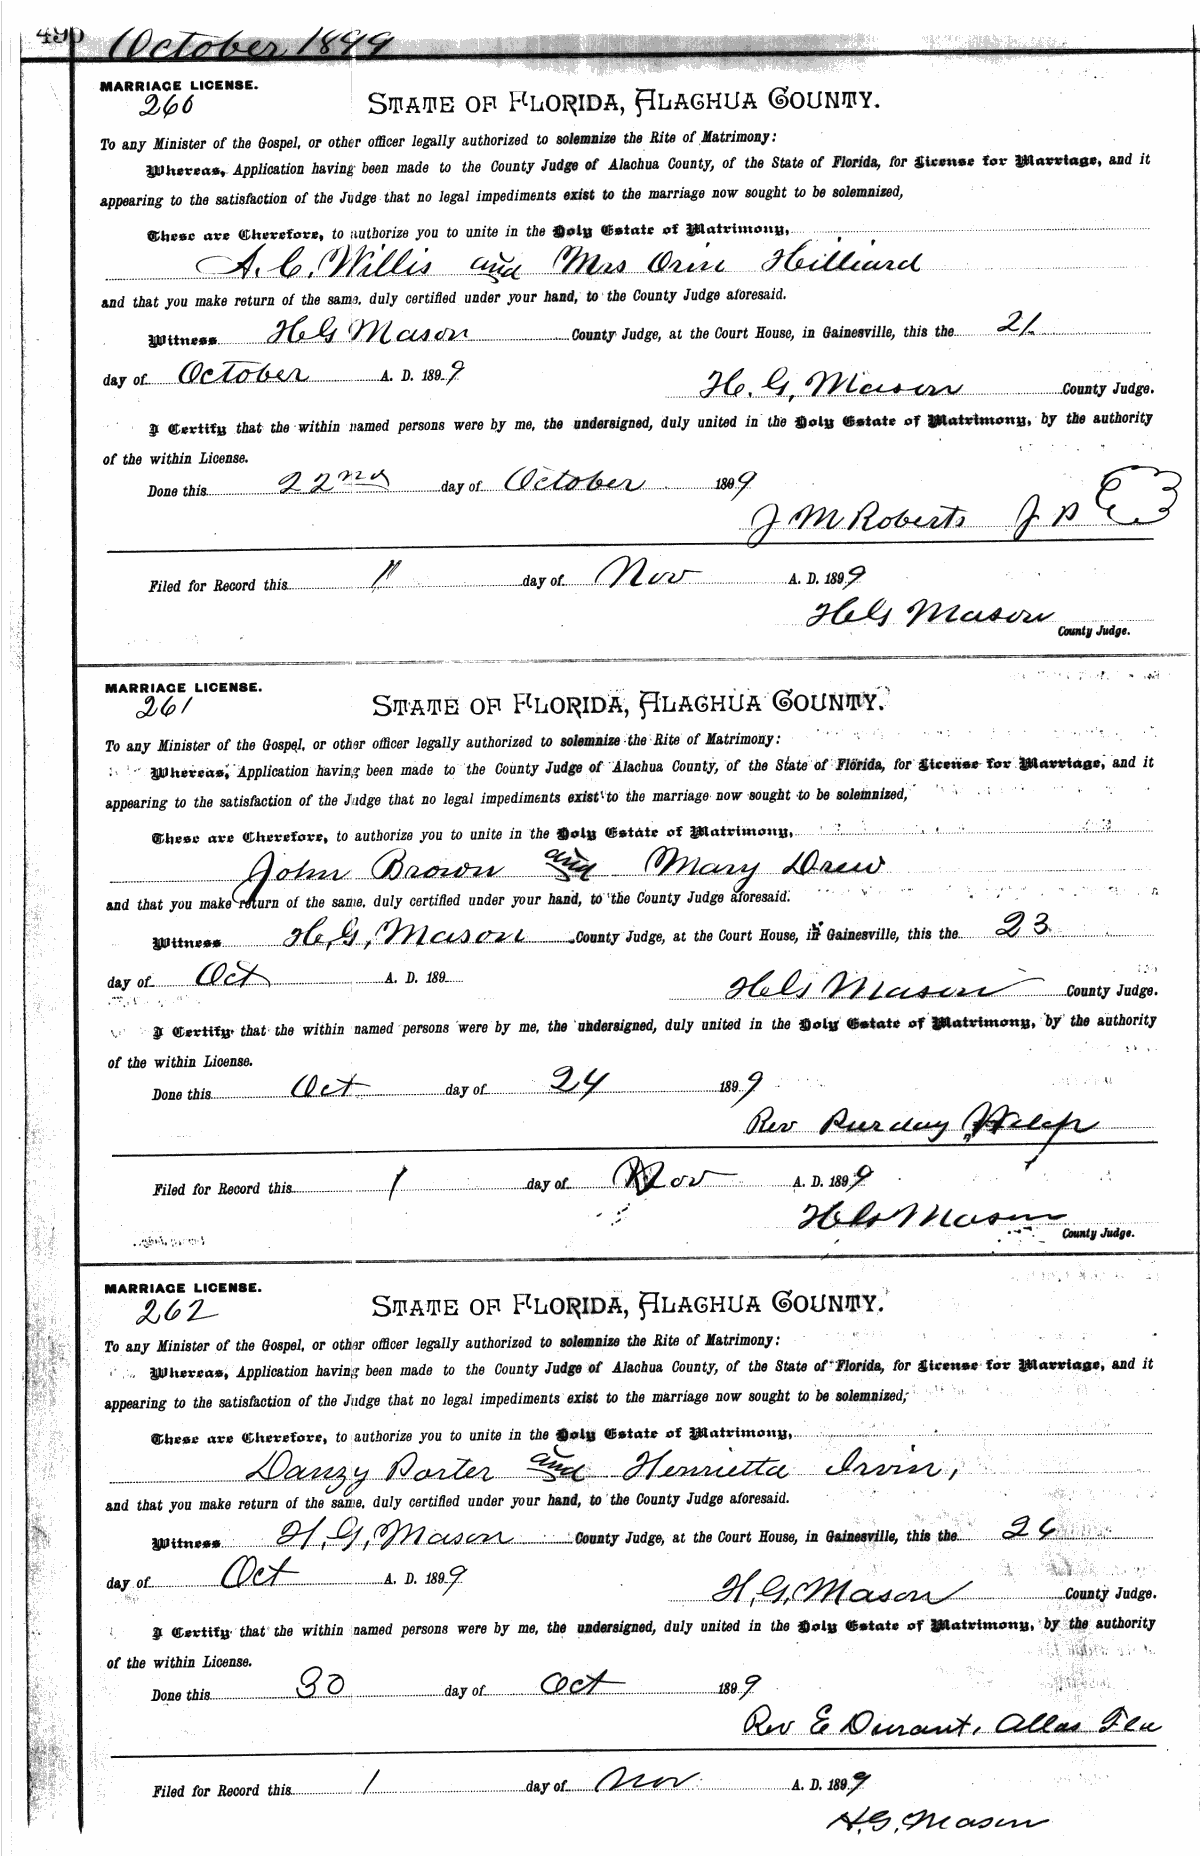 October 1899
MARRIAGE LICENSE.
260
STATE OF FLORIDA, ALACHUA COUNTY.
To any Minister of the Gospel, or other officer legally authorized to solemnize the Rite of Matrimony:
Whereas, Application having been made to the County Judge of Alachua County, of the State of Florida, for License for Marriage, and it
appearing to the satisfaction of the Judge that no legal impediments exist to the marriage now sought to be solemnized,
These are Therefore, to authorize you to unite in the Holy Estate of Matrimony,
A. C. Willis and Mrs Orin Hilliard
and that you make return of the same, duly certified under your hand, to the County Judge aforesaid.
Witness H G Mason County Judge, at the Court House, in Gainesville, this the 21
day of October A. D. 1899
H. G, Mason County Judge.
I Certify that the within named persons were by me, the undersigned, duly united in the Holy Estate of Matrimony, by the authority
of the within License.
Done this 22nd day of October 1899
J M Roberts J P
Filed for Record this 1 day of Nov A. D. 1899
H G Mason
County Judge.
MARRIAGE LICENSE.
261
STATE OF FLORIDA, ALACHUA COUNTY.
To any Minister of the Gospel, or other officer legally authorized to solemnize the Rite of Matrimony:
Whereas, Application having been made to the County Judge of Alachua County, of the State of Florida, for License for Marriage, and it
appearing to the satisfaction of the Judge that no legal impediments exist to the marriage now sought to be solemnized,
These are Therefore, to authorize you to unite in the Holy Estate of Matrimony,
John Brown and Mary Drew
and that you make return of the same, duly certified under your hand, to the County Judge aforesaid.
Witness H, G, Mason County Judge, at the Court House, in Gainesville, this the 23
day of Oct A. D. 189
H G Mason County Judge.
I Certify that the within named persons were by me, the undersigned, duly united in the Holy Estate of Matrimony, by the authority
of the within License.
Done this Oct day of 24 1899
Rev Purday
Filed for Record this 1 day of Nov A. D. 1899
H G Mason
County Judge.
MARRIAGE LICENSE.
262
STATE OF FLORIDA, ALACHUA COUNTY.
To any Minister of the Gospel, or other officer legally authorized to solemnize the Rite of Matrimony:
Whereas, Application having been made to the County Judge of Alachua County, of the State of Florida, for License for Marriage, and it
appearing to the satisfaction of the Judge that no legal impediments exist to the marriage now sought to be solemnized,
These are Therefore, to authorize you to unite in the Holy Estate of Matrimony,
Danzy Porter and Henrietta Irvin,
and that you make return of the same, duly certified under your hand, to the County Judge aforesaid.
Witness H, G, Mason County Judge, at the Court House, in Gainesville, this the 26
day of Oct A. D. 1899
H, G, Mason County Judge.
I Certify that the within named persons were by me, the undersigned, duly united in the Holy Estate of Matrimony, by the authority
of the within License.
Done this 30 day of Oct 1899
Rev E Durant, Fla
Filed for Record this 1 day of Nov A. D. 1899
H. G, Mason